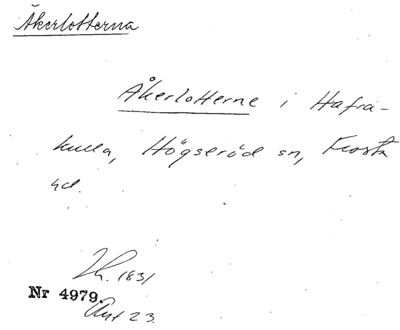 Åkerlotterna
Åkerlotterne i Hafra-
kulla, Högseröd sn, Frosta
hd.
1831
Nr 4979.
Akt 23.